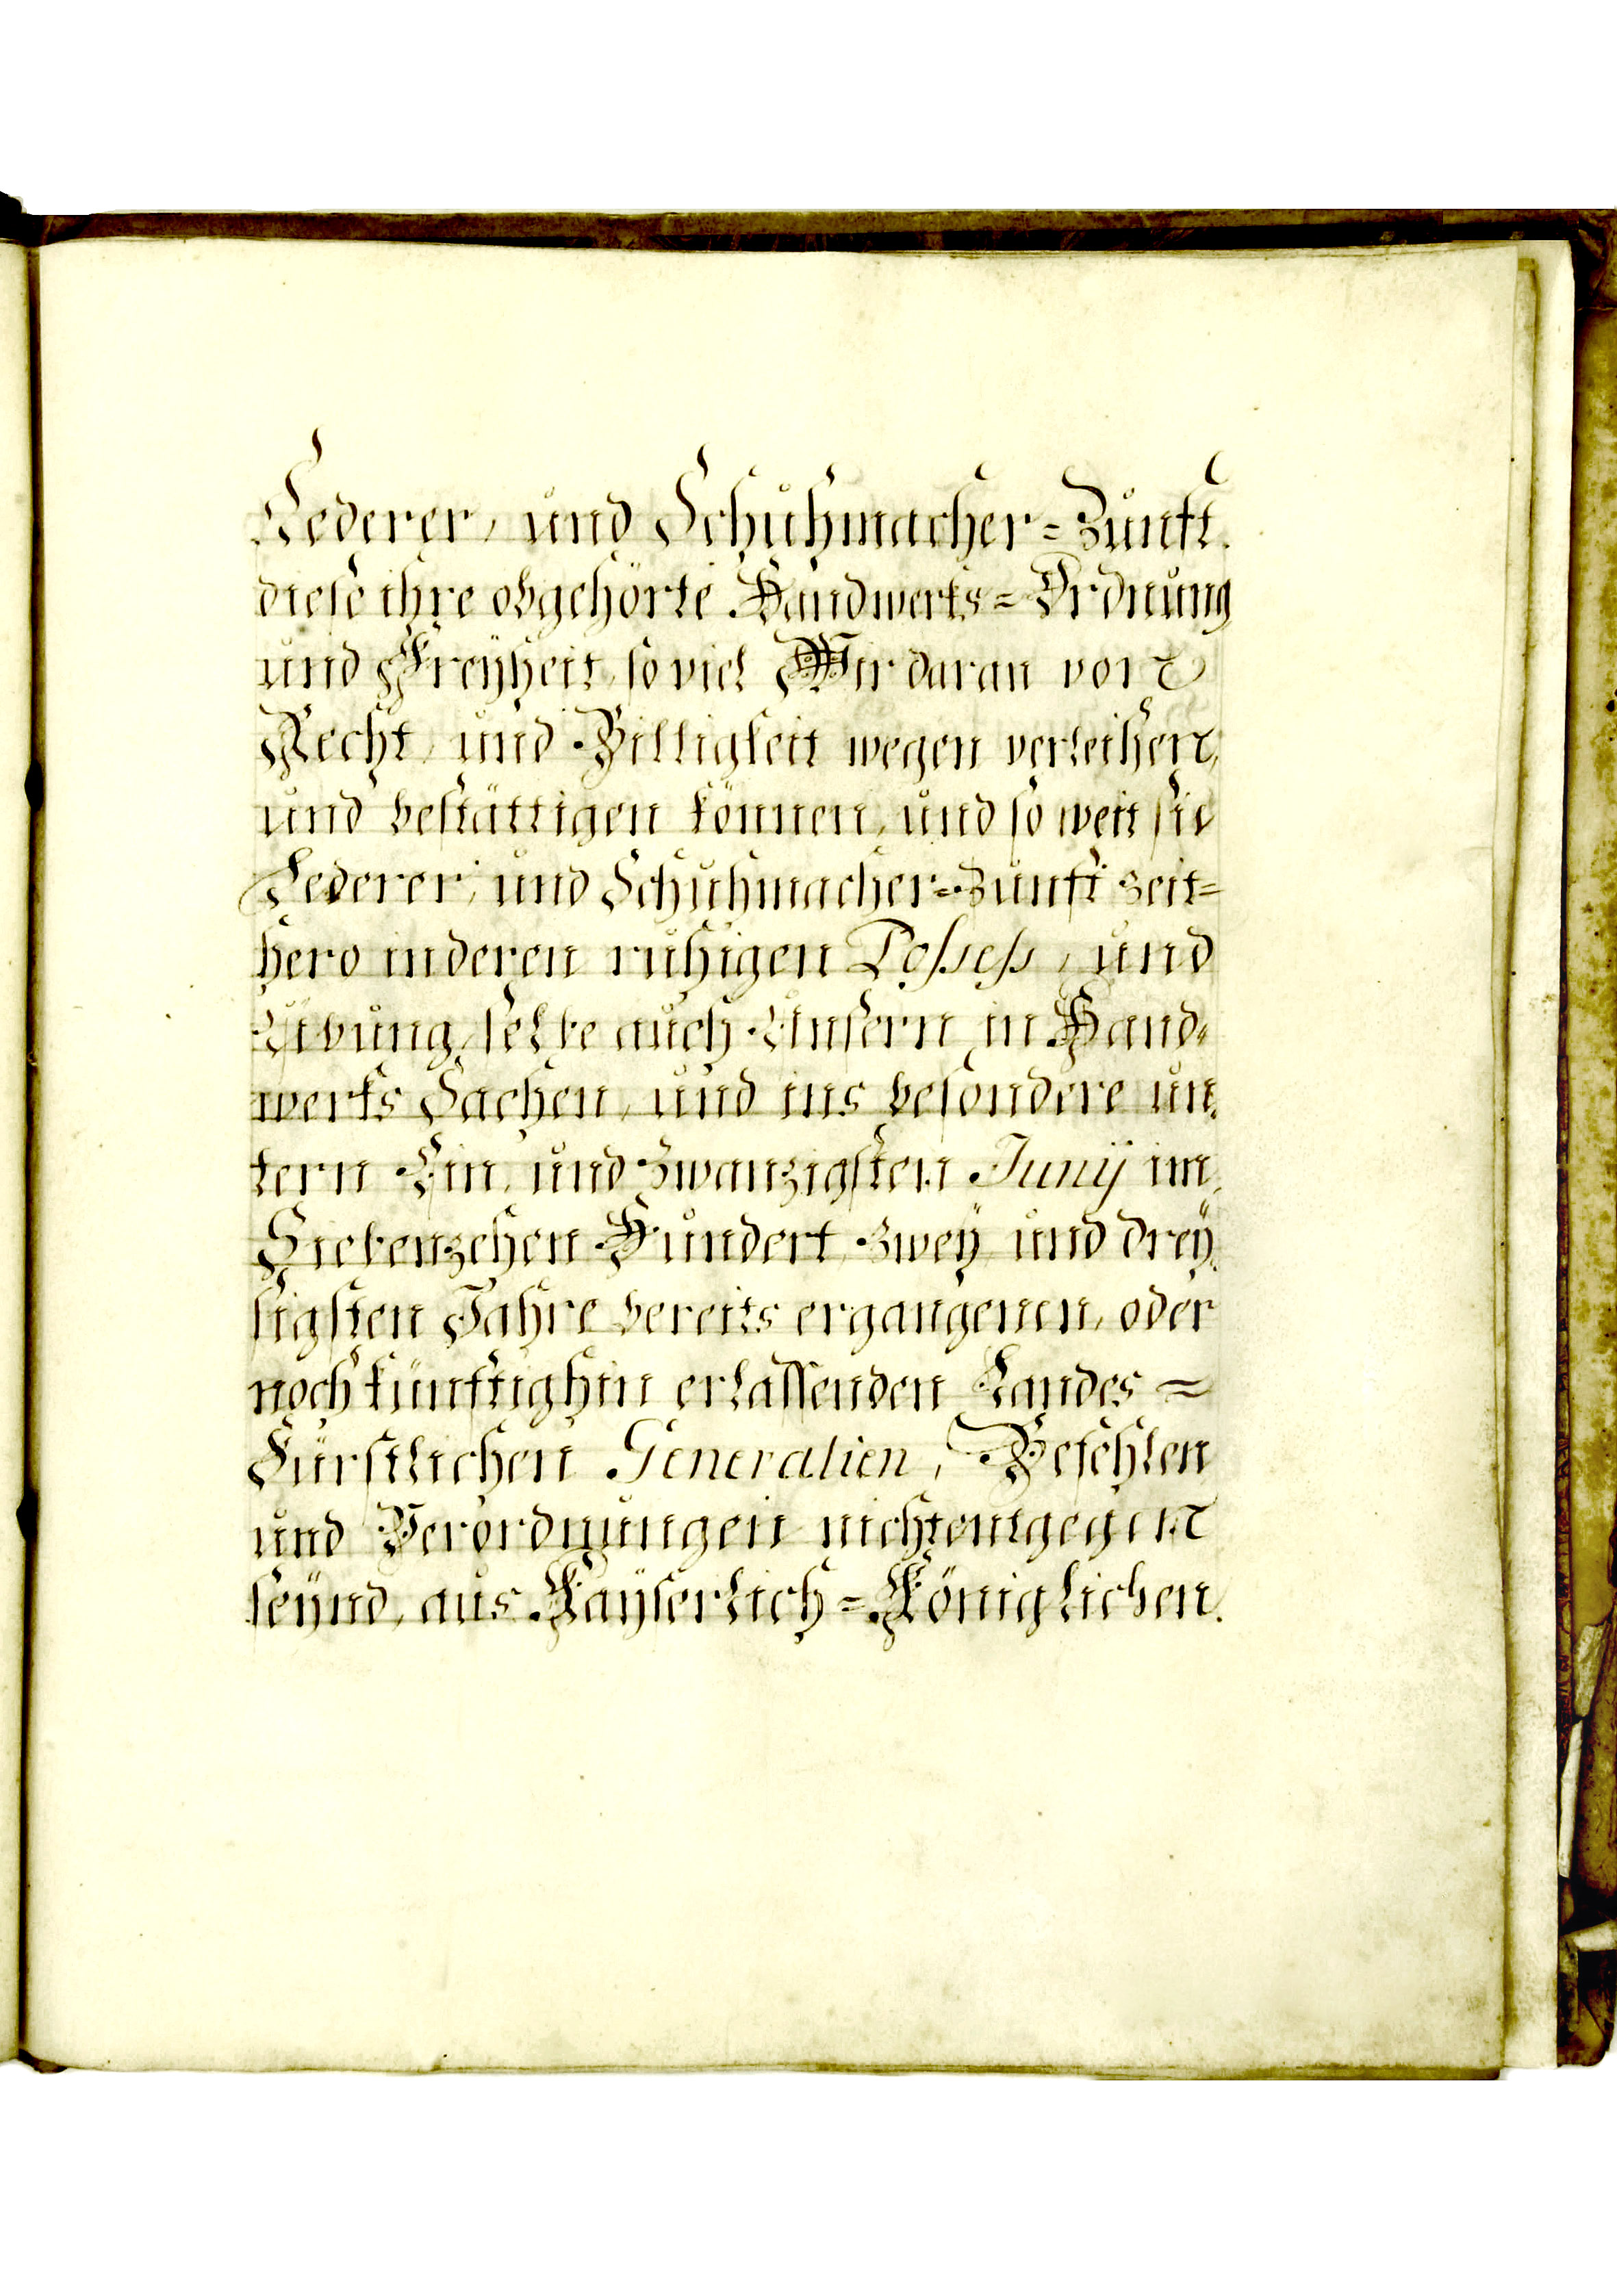 Lederer, und Schuhmacher=Zunft
diese ihre obgehörte Handwerks=Ordnung
und Freyheit, so viel Wir daran von
Recht, und Billigkeit wegen verleihen,
und bestättigen können, und so weit sie
Lederer, und Schuhmacher=Zunft zeit=
hero in deren ruhigen Possess, und
Übung, selbe auch Unsern in Hand=
werks Sachen, und ins besondere un=
tern Ein, und Zwanzigsten Junÿ im
Siebenzehen Hundert, zweÿ und dreÿ=
sigsten Jahre bereits ergangenen, oder
noch künftighin erlassenden Landes=
Fürstlichen Generalien, Befehlen
und Verordnungen nicht entgegen
seÿnd, aus Kaÿserlich=Königlichen